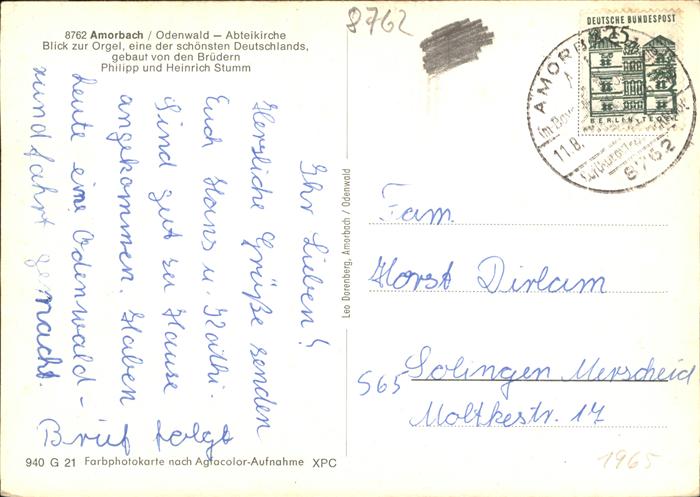 8762 Amorbach / Odenwald — Abteikirche
Blick zur Orgel, eine der schönsten Deutschlands,
gebaut von den Brüdern
Philipp und Heinrich Stumm
Ihr Lieben!
Herzliche Grüße senden
Euch Hans u. Käthi.
Sind gut zu Hause
angekommen. Haben
heute eine Odenwald-
rundfahrt gemacht.
Brief folgt
940 G 21 Farbphotokarte nach Agfacolor-Aufnahme XPC
Leo Dorenberg, Amorbach / Odenwald
8762
DEUTSCHE BUNDESPOST
BERLIN-TEGEL
AMORBACH
11.8.
8762
Fam.
Horst Dirlam
565 Solingen Merscheid
Moltkestr. 17
1965